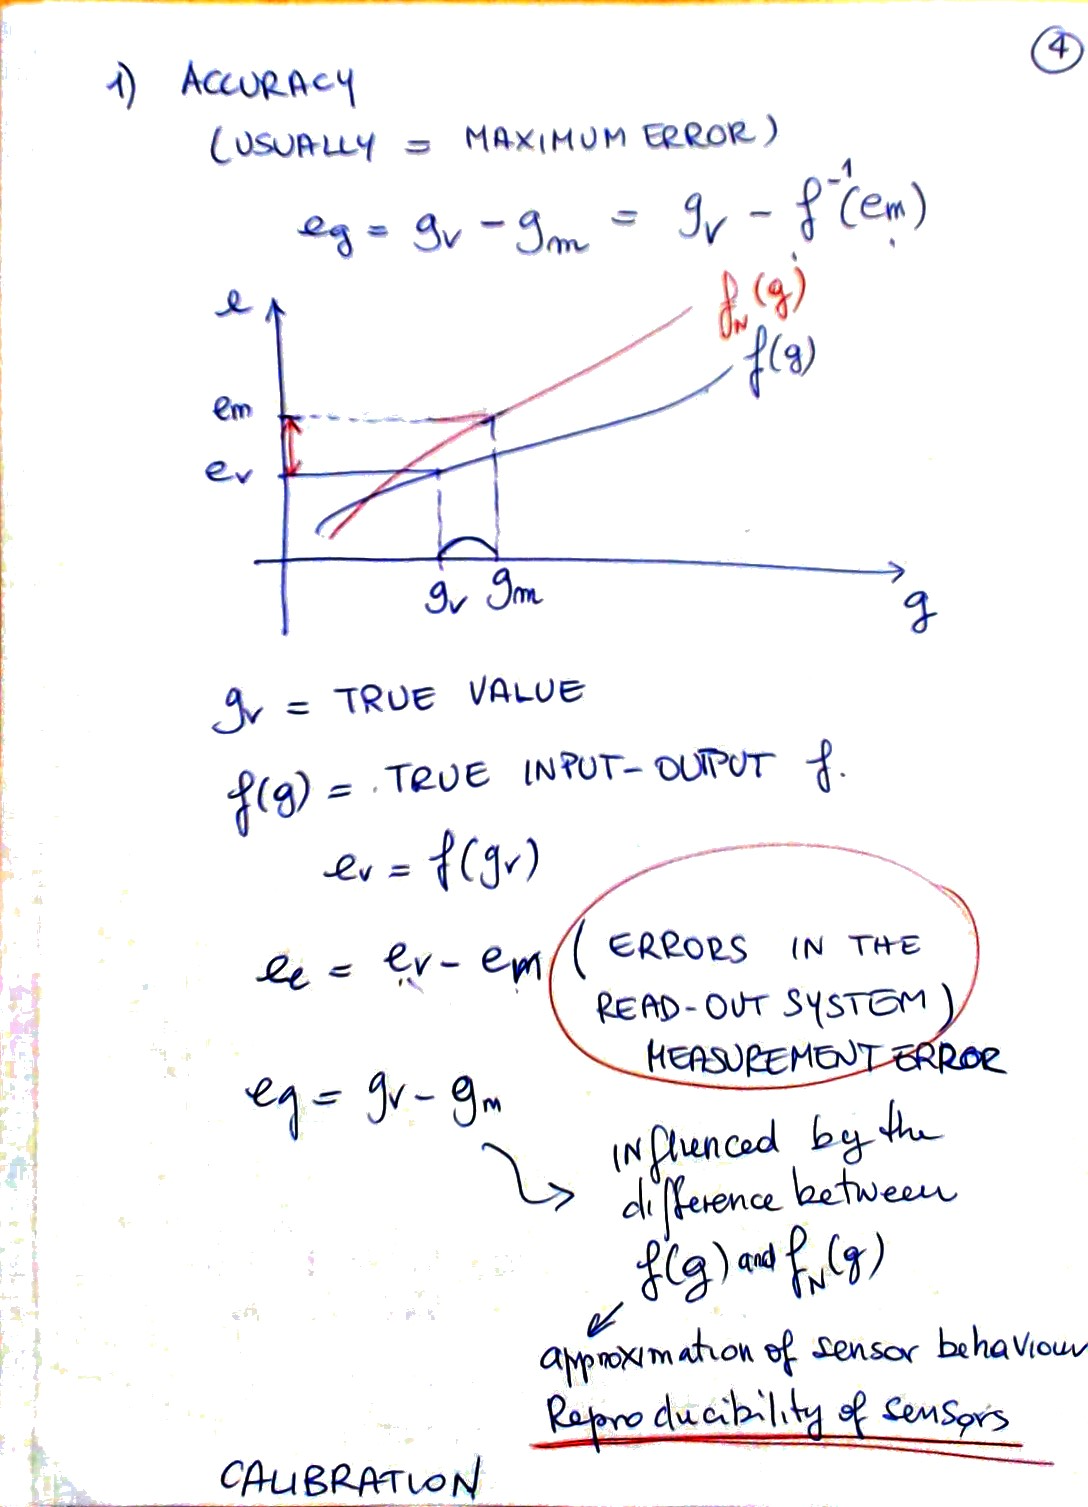 4
1) ACCURACY
(USUALLY = MAXIMUM ERROR)
eg = gv - gm = gv - f⁻¹(em)
e
fN(g)
f(g)
em
ev
gv gm
g
gv = TRUE VALUE
f(g) = TRUE INPUT-OUTPUT f.
ev = f(gv)
ee = ev - em (ERRORS IN THE
READ-OUT SYSTEM)
MEASUREMENT ERROR
eg = gv - gm
INfluenced by the
difference between
f(g) and fN(g)
approximation of sensor behaviour
Reproducibility of sensors
CALIBRATION